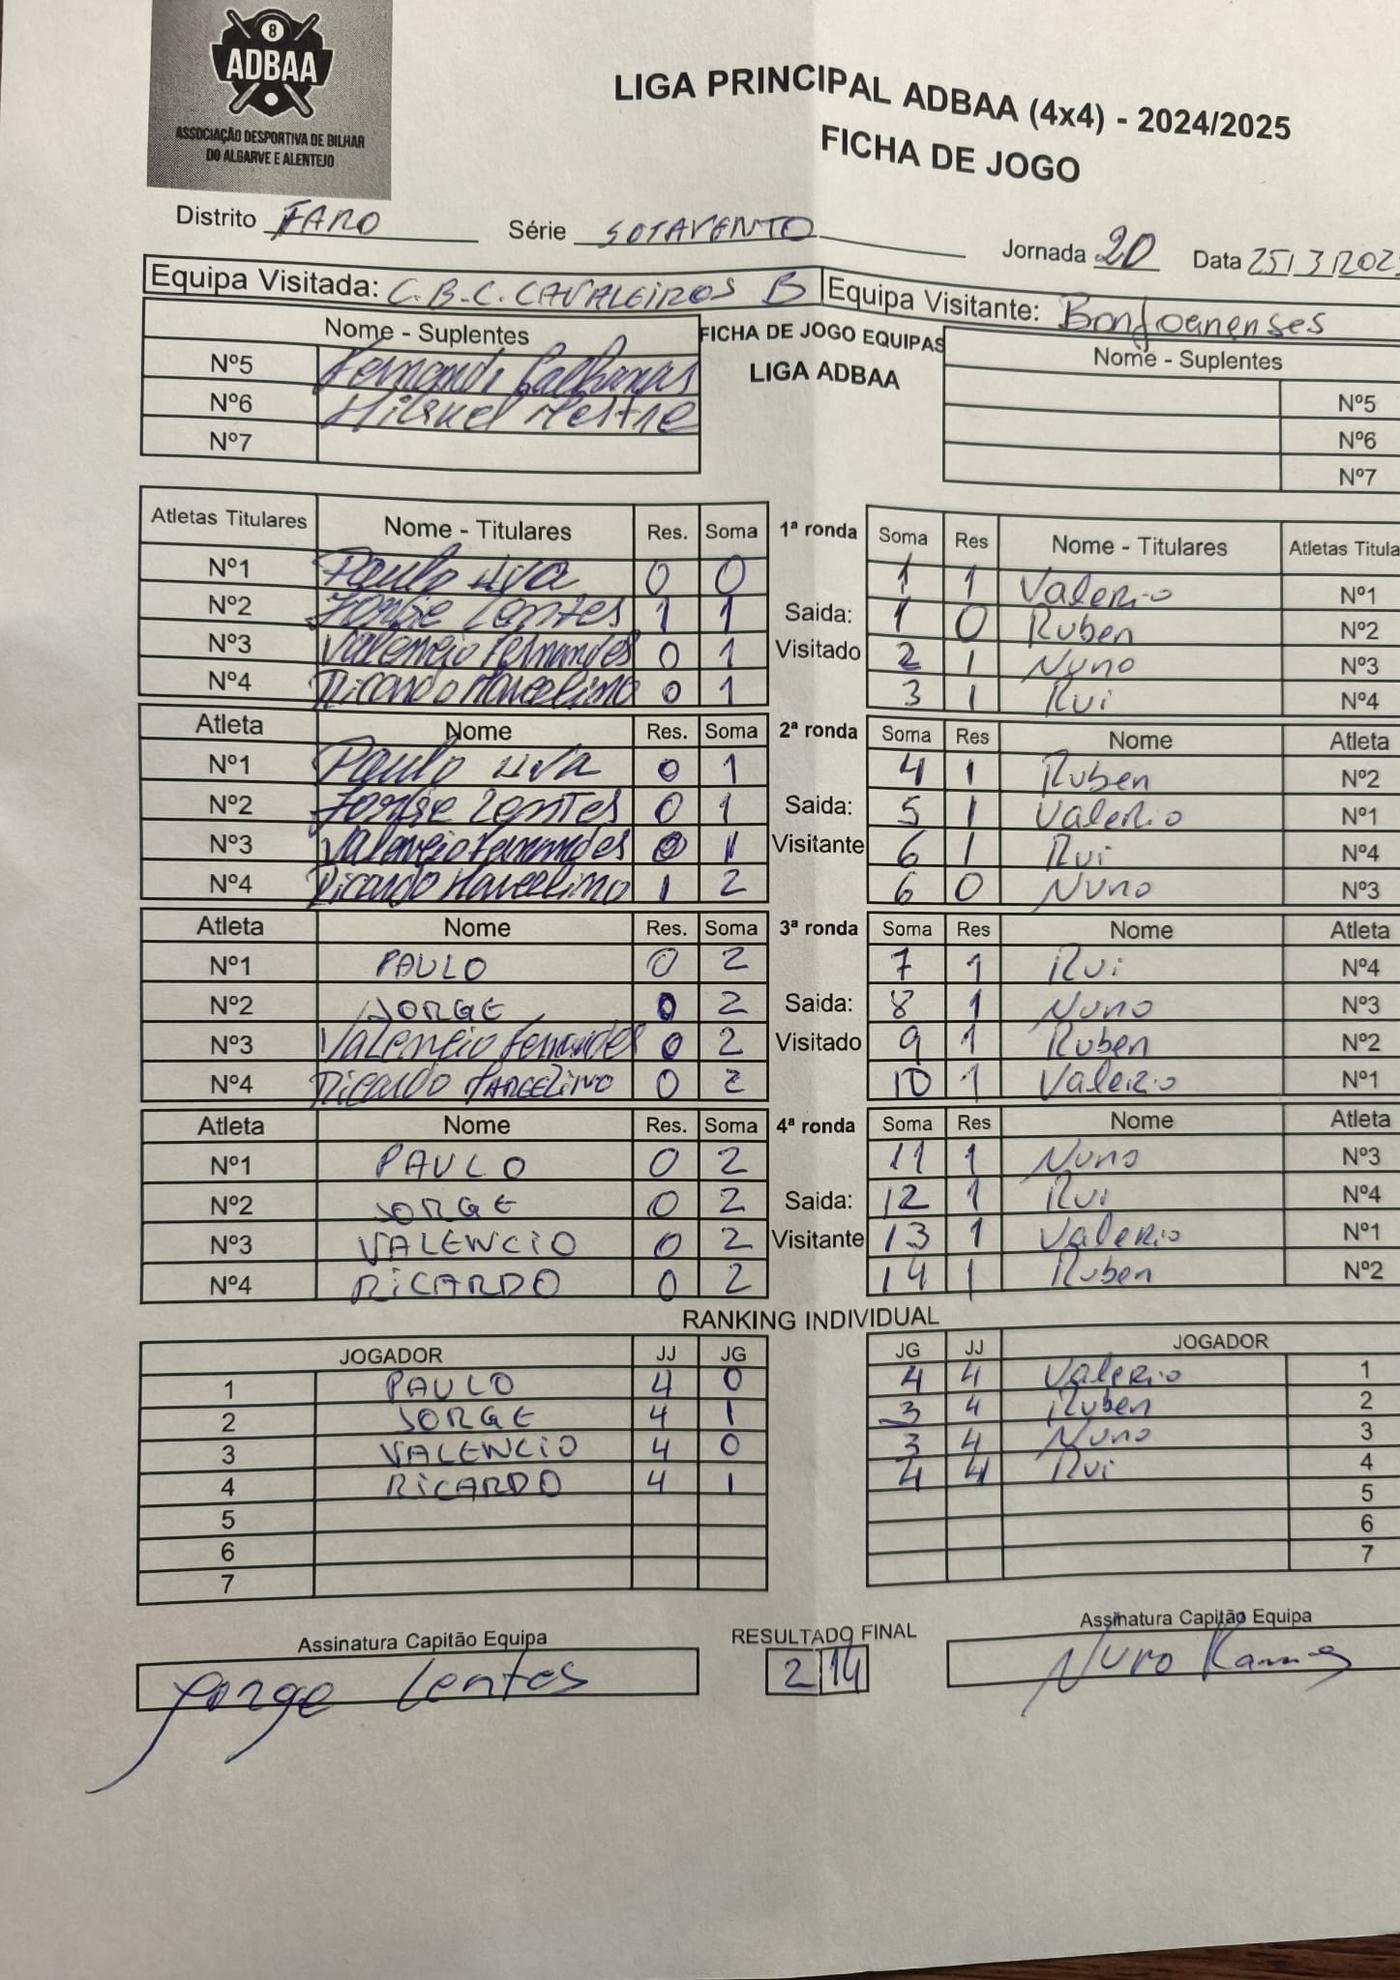 8
ADBAA
ASSOCIAÇÃO DESPORTIVA DE BILHAR
DO ALGARVE E ALENTEJO
LIGA PRINCIPAL ADBAA (4x4) - 2024/2025
FICHA DE JOGO
Distrito FARO Série SOTAVENTO Jornada 20 Data 25/3/202
Equipa Visitada: C.B.C. CAVALEIROS B Equipa Visitante: Bonjoanenses
Nome - Suplentes FICHA DE JOGO EQUIPAS Nome - Suplentes
LIGA ADBAA
Nº5 Nº5
Nº6 Miguel Mestre Nº6
Nº7 Nº7
Atletas Titulares Nome - Titulares Res. Soma 1ª ronda Soma Res Nome - Titulares Atletas Titula
Nº1 Paulo 0 0 1 1 Valerio Nº1
Nº2 Jorge Lentes 1 1 Saida: 1 0 Ruben Nº2
Nº3 Valencio Fernandes 0 1 Visitado 2 1 Nuno Nº3
Nº4 Ricardo Marcelino 0 1 3 1 Rui Nº4
Atleta Nome Res. Soma 2ª ronda Soma Res Nome Atleta
Nº1 Paulo 0 1 4 1 Ruben Nº2
Nº2 Jorge Lentes 0 1 Saida: 5 1 Valerio Nº1
Nº3 Valencio Fernandes 0 1 Visitante 6 1 Rui Nº4
Nº4 Ricardo Marcelino 1 2 6 0 Nuno Nº3
Atleta Nome Res. Soma 3ª ronda Soma Res Nome Atleta
Nº1 PAULO 0 2 7 1 Rui Nº4
Nº2 JORGE 0 2 Saida: 8 1 Nuno Nº3
Nº3 Valencio Fernandes 0 2 Visitado 9 1 Ruben Nº2
Nº4 Ricardo MARCELINO 0 2 10 1 Valerio Nº1
Atleta Nome Res. Soma 4ª ronda Soma Res Nome Atleta
Nº1 PAULO 0 2 11 1 Nuno Nº3
Nº2 JORGE 0 2 Saida: 12 1 Rui Nº4
Nº3 VALENCIO 0 2 Visitante 13 1 Valerio Nº1
Nº4 RICARDO 0 2 14 1 Ruben Nº2
RANKING INDIVIDUAL
JOGADOR JJ JG JG JJ JOGADOR
1 PAULO 4 0 4 4 Valerio 1
2 JORGE 4 1 3 4 Ruben 2
3 VALENCIO 4 0 3 4 Nuno 3
4 RICARDO 4 1 4 4 Rui 4
5 5
6 6
7 7
Assinatura Capitão Equipa RESULTADO FINAL Assinatura Capitão Equipa
Jorge Lentes 2 14 Nuno